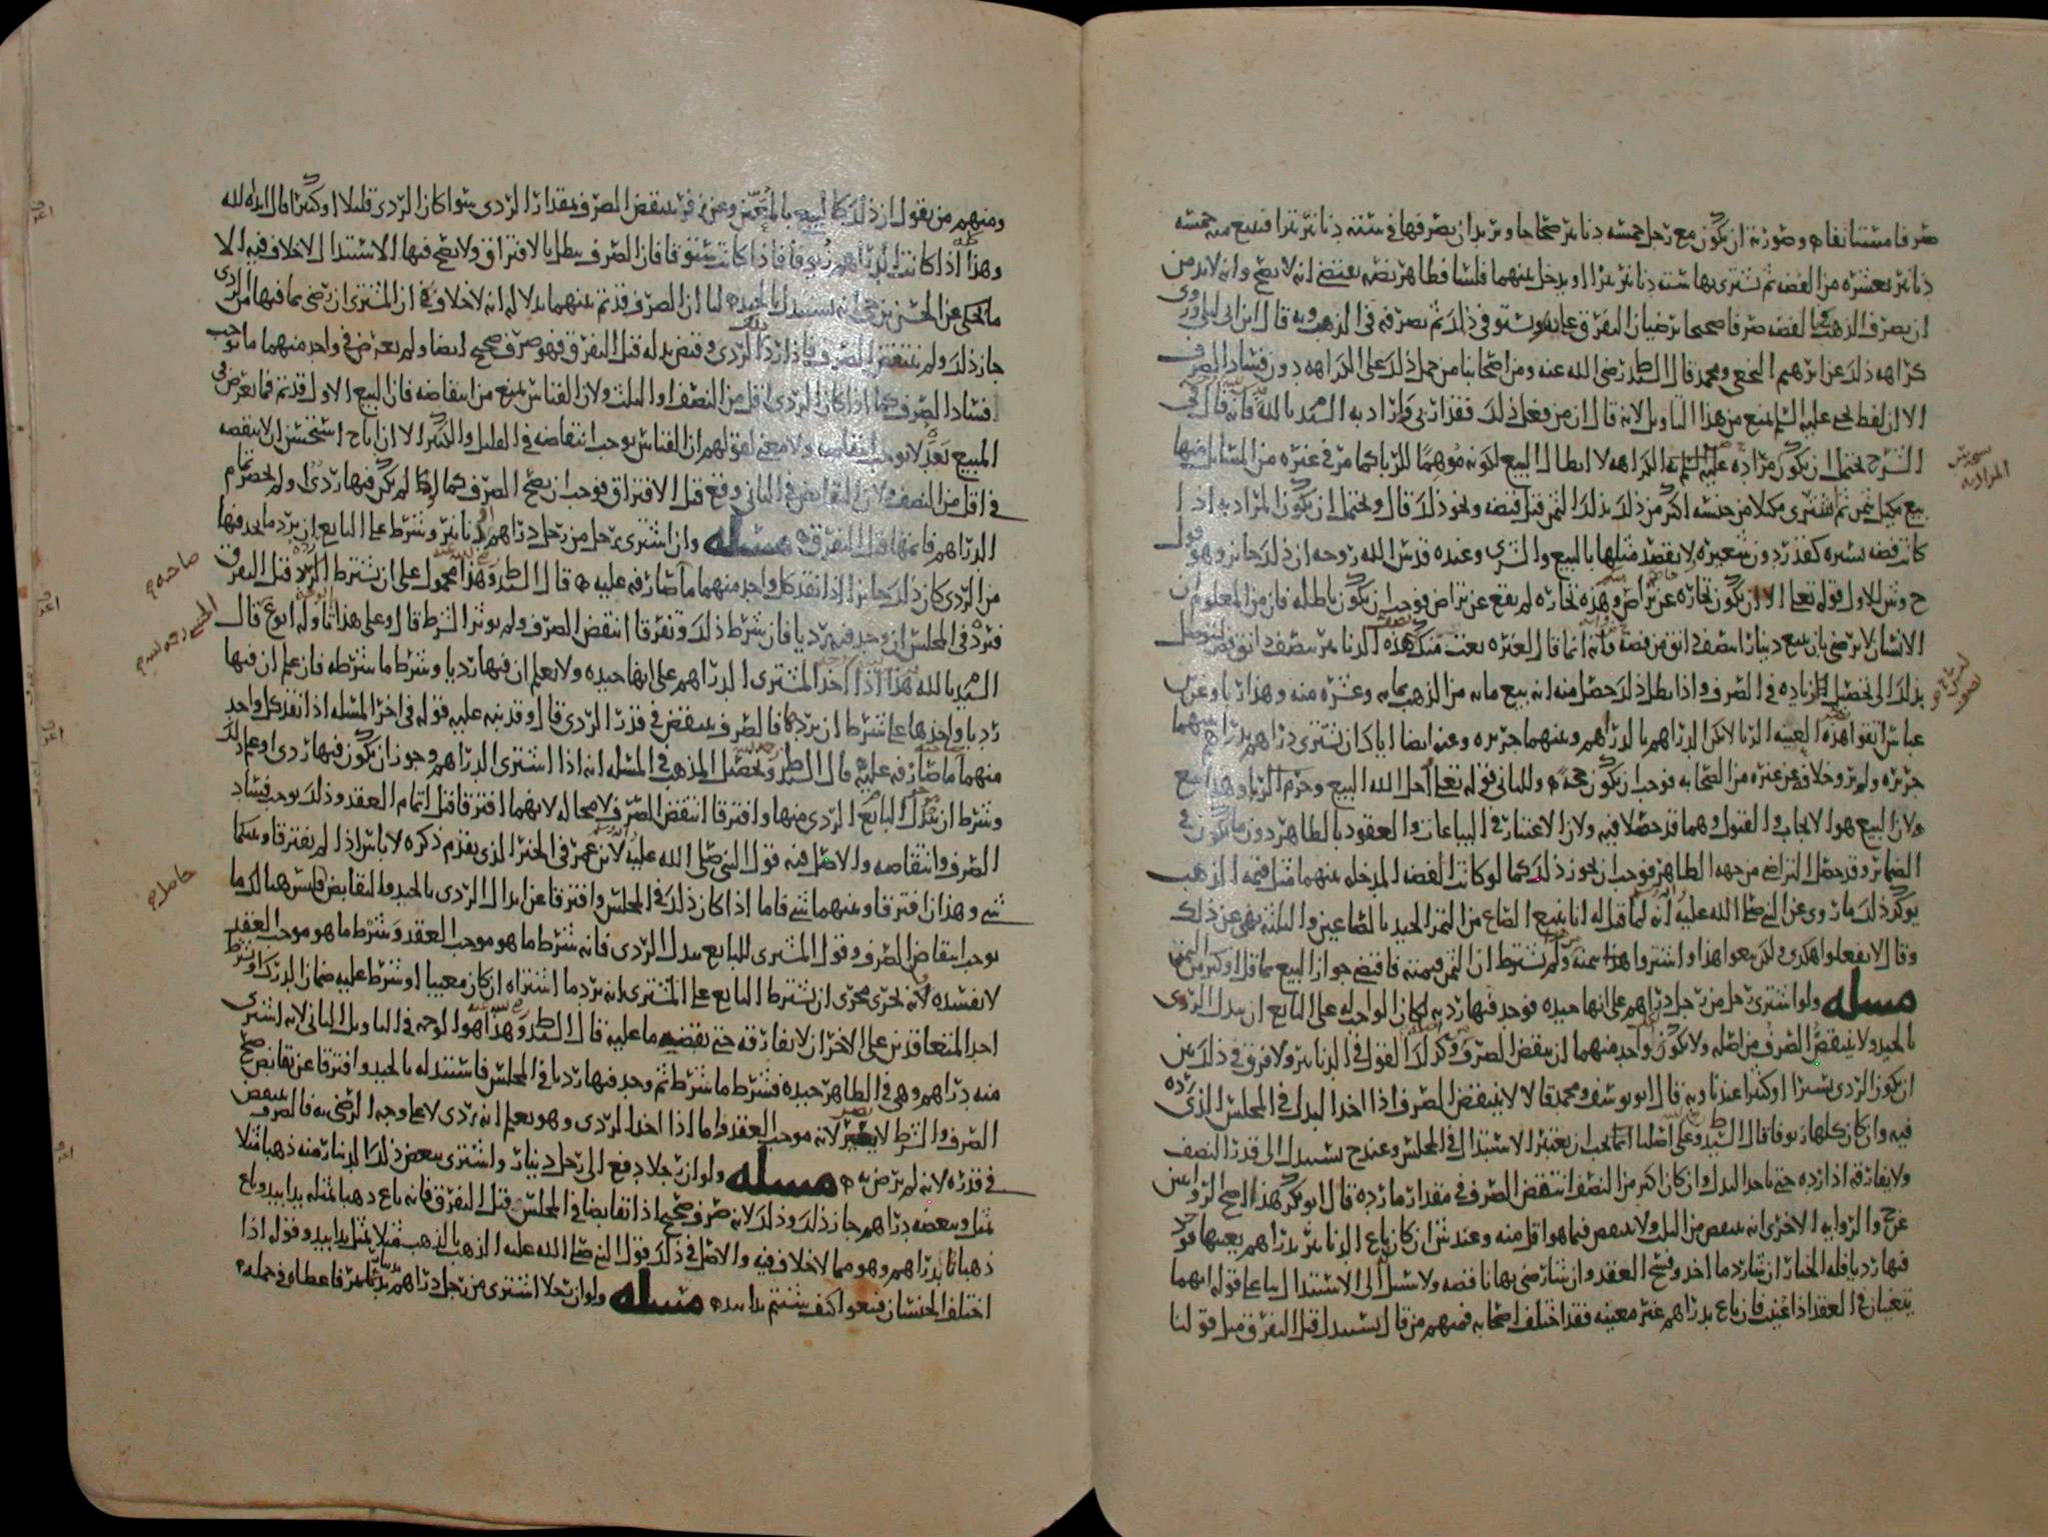 صرفا مستانفا وصورته ان يكون مع رجل خمسه دنانير صحاحا ويريد ان يصرفها في سته دنانير نقرا فيبيع منه خمسه
دنانير بعشره من الفضه ثم يشتري بها سته دنانير نقرا او يدخل بينهما فلسا فظاهر نصه يقتضي انه لا يصح وانه لا بد من
ان يصرف الذهب بالفضه صرفا صحيحا يرضيان التفرق عليه ويستوفي ذلك ثم يصرفه في الذهب وبه قال ابن ابي ليلى وروي
كراهه ذلك عن ابرهيم النخعي ومحمد قال السيد ط رضي الله عنه ومن اصحابنا من حمل ذلك على الكراهه دون فساد الصرف
الا ان لفظ يحيى عليه السلم يمنع من هذا التاويل لانه قال ان من فعل ذلك فقد اربى واراد به السيد بالله فانه قال في
الشرح يحتمل ان يكون مراده عليه السلم الكراهه لا ابطال البيع لكونه موهما للربا كما مر في غيره من المسائل منها
بيع مكيل بثمن ثم اشترى مكيلا من جنسه اكثر من ذلك بذلك الثمن قبل قبضه ونحو ذلك قال ويحتمل ان يكون المراد به اذا
كانت فضه يسيره كقدر دون شعيره لا يقصد مثلها بالبيع والشري وعنده قدس الله روحه ان ذلك جائز وهو قول
ح وش للاول قوله تعلى الا ان يكون تجاره عن تراض وهذه تجاره لم يقع عن تراض فوجب ان يكون باطله فان من المعلوم ان
الانسان لا يرضى بان يبيع دينارا بنصف دانق من فضه فانه انما قال لغيره بعت منك هذه الدنانير بنصف دانق فضه ليتوصل
بذلك الى تحصيل الزياده في الصرف واذا بطل ذلك حصل منه انه بيع مايه من الذهب بمايه وعشره منه وهذا ربا وعن ابن
عباس اتقوا هذه العينه الربا لا يكن الدراهم بالدراهم وبينهما جريره وعنه ايضا اياك ان تشتري دراهم بدراهم بينهما
جريره ولم يرو خلافه عن غيره من الصحابه فوجب ان يكون حجه وللثاني قوله تعلى احل الله البيع وحرم الربا وهذا بيع
ولان البيع هو الايجاب والقبول وهما قد حصلا فيه ولان الاعتبار في البياعات والعقود بالظاهر دون ما يكون في
الضمائر وقد حصل التراضي من جهه الظاهر فوجب ان يجوز ذلك كما لو كانت الفضه المدخله بينهما مثل قيمه الذهب
يوكد ذلك ما روي عن النبي صلى الله عليه انه لما قيل له انا نبيع الصاع من التمر الجيد بالصاعين والثلثه نهى عن ذلك
وقال لا تفعلوا هكذى ولكن بيعوا هذا واشتروا بثمنه ولم يشترط ان الثمن قيمته فاقتضى جواز البيع بما قل او كثر من الثمن
مسله ولو اشترى رجل من رجل دراهم على انها جيده فوجد فيها رديه لكان الواجب له على البائع ان يبدل الردي
بالجيد ولا ينتقض الصرف من اصله ولا يكون لواحد منهما ان ينقض الصرف وكذلك القول في الدنانير ولا فرق في ذلك بين
ان يكون الردي يسيرا او كثيرا عندنا وبه قال ابو يوسف ومحمد قالا لا ينتقض الصرف اذا اخذ البدل في المجلس الذي رده
فيه وان كان كلها زيوفا قال السيد ط وعلى اصلنا انما يجب ان يعتبر الاستبدال في المجلس وعند ح يستبدل الى قدر النصف
ولا يفارقه اذا رده حتى ياخذ البدل وان كان اكثر من النصف انتقض الصرف في مقدار ما رده قال ابو بكر هذا اصح الروايتين
عن ح والروايه الاخرى انه ينتقض من الثلث ولا ينتقض فيما هو اقل منه وعند ش ان كان باع الدنانير بدراهم بعينها فوجد
فيها رديا فله الخيار ان شا رد ما اخذ وفسخ العقد وان شا رضي بها ناقصه ولا سبيل الى الاستبدال بنا على قوله انهما
يتعينان في العقد اذا عينت فان باع بدراهم غير معينه فقد اختلف اصحابه فمنهم من قال يستبدل قبل التفرق مثل قولنا
ومنهم من يقول ان ذلك كالبيع بالمعين وعن زفر ينتقض الصرف بمقدار الردي سوا كان الردي قليلا او كثيرا قال ايده الله
وهذا اذا كانت الدراهم زيوفا فاذا كانت ستوقا فان الصرف يبطل بالافتراق ولا يصح فيها الاستبدال لا خلاف فيه الا
ما يحكى عن الحسن بن حي انه يستبدل بالجيده لنا ان الصرف قد تم بينهما بدلاله انه لا خلاف في ان المشتري ان رضي بما فيها من الردي
جاز ذلك ولم ينتقض الصرف فاذا رد الردي وقبض بدله قبل التفرق فهو صرف صحيح ايضا ولم يعرض في واحد منهما ما يوجب
فساد الصرف كما اذا كان الردي اقل من النصف او الثلث ولان القياس يمنع من انتقاضه فان البيع الاول قد تم فما يعرض في
المبيع بعد لا يوجب انتقاضه ولا معنى لقولهم ان القياس يوجب انتقاضه في القليل والكثير الا ان ابا ح استحسن ان لا ينقصه
في اقل من النصف ولان التقابض في الثاني وقع قبل الافتراق فوجب ان يصح الصرف كما لو لم يكن فيها ردي او لم يحضر تمام
الدراهم فاتمها قبل التفرق مسله وان اشترى رجل من رجل دراهم او دنانير وشرط على البائع ان يرد ما يجد فيها
من الردي كان ذلك جائزا اذا نقد كل واحد منهما ما صارفه عليه قال السيد ط وهذا محمول على ان يشترط الرد قبل التفرق
فيرد في المجلس ان وجد فيه رديا فان شرط ذلك وتفرقا انتقض الصرف ولم يوثر الشرط قال وعلى هذا تاوله ابوع قال
السيد بالله هذا اذا اخذ المشتري الدراهم على انها جيده ولا يعلم ان فيها رديا وشرط ما شرطه فان علم ان فيها
رديا واخذها على شرط ان يردها فالصرف ينتقض في قدر الردي قال وقد نبه عليه قوله في اخر المسله اذا نقد كل واحد
منهما ما صارفه عليه قال السيد ط وتحصيل المذهب في المسله انه اذا اشترى الدراهم وجوز ان يكون فيها ردي او علم ذلك
وشرط ان يبدل البائع الردي منها وافترقا انتقض الصرف لا محاله لانهما افترقا قبل اتمام العقد وذلك يوجب فساد
الصرف وانتقاضه والاصل فيه قول النبي صلى الله عليه لابن عمر في الخبر الذي تقدم ذكره لا باس اذا لم يفترقا وبينكما
شي وهذان افترقا وبينهما شي فاما اذا كان ذلك في المجلس وافترقا عن ابدال الردي بالجيد والتقابض فليس هنالك ما
يوجب انتقاض الصرف وقول المشتري للبائع يبدل الردي فانه شرط ما هو موجب العقد وشرط ما هو موجب العقد
لا يفسده لانه يجري مجرى ان يشترط البائع على المشتري انه يرد ما اشتراه ان كان معيبا او شرط عليه ضمان الدرك او شرط
احد المتعاقدين على الاخر ان لا يفارقه حتى يقضيه ما عليه قال السيد ط وهذا هو الوجه في التاويل الثاني لانه اشترى
منه دراهم وهي في الظاهر جيده فشرط ما شرط ثم وجد فيها رديا في المجلس فاستبدله بالجيد وافترقا عن تقابض صح
الصرف والشرط لا يضر لانه موجب العقد واما اذا اخذ الردي وهو يعلم انه ردي لا على وجه الرضى به فالصرف ينتقض
في قدره لانه لم يرض به مسله ولو ان رجلا دفع الى رجل دينار واشترى ببعض ذلك الدينار منه ذهبا مثلا
بمثل وببعضه دراهم جاز ذلك وذلك لانه صرف صحيح اذا تقابضا في المجلس قبل التفرق فانه باع ذهبا بمثله يدا بيد وباع
ذهبا بدراهم وهو مما لا خلاف فيه والاصل في ذلك قول النبي صلى الله عليه الذهب بالذهب مثلا بمثل يدا بيد وقوله اذا
اختلف الجنسان فبيعوا كيف شئتم يدا بيد مسله ولو ان رجلا اشترى من رجل دراهم بدنانير فاعطاه في جمله